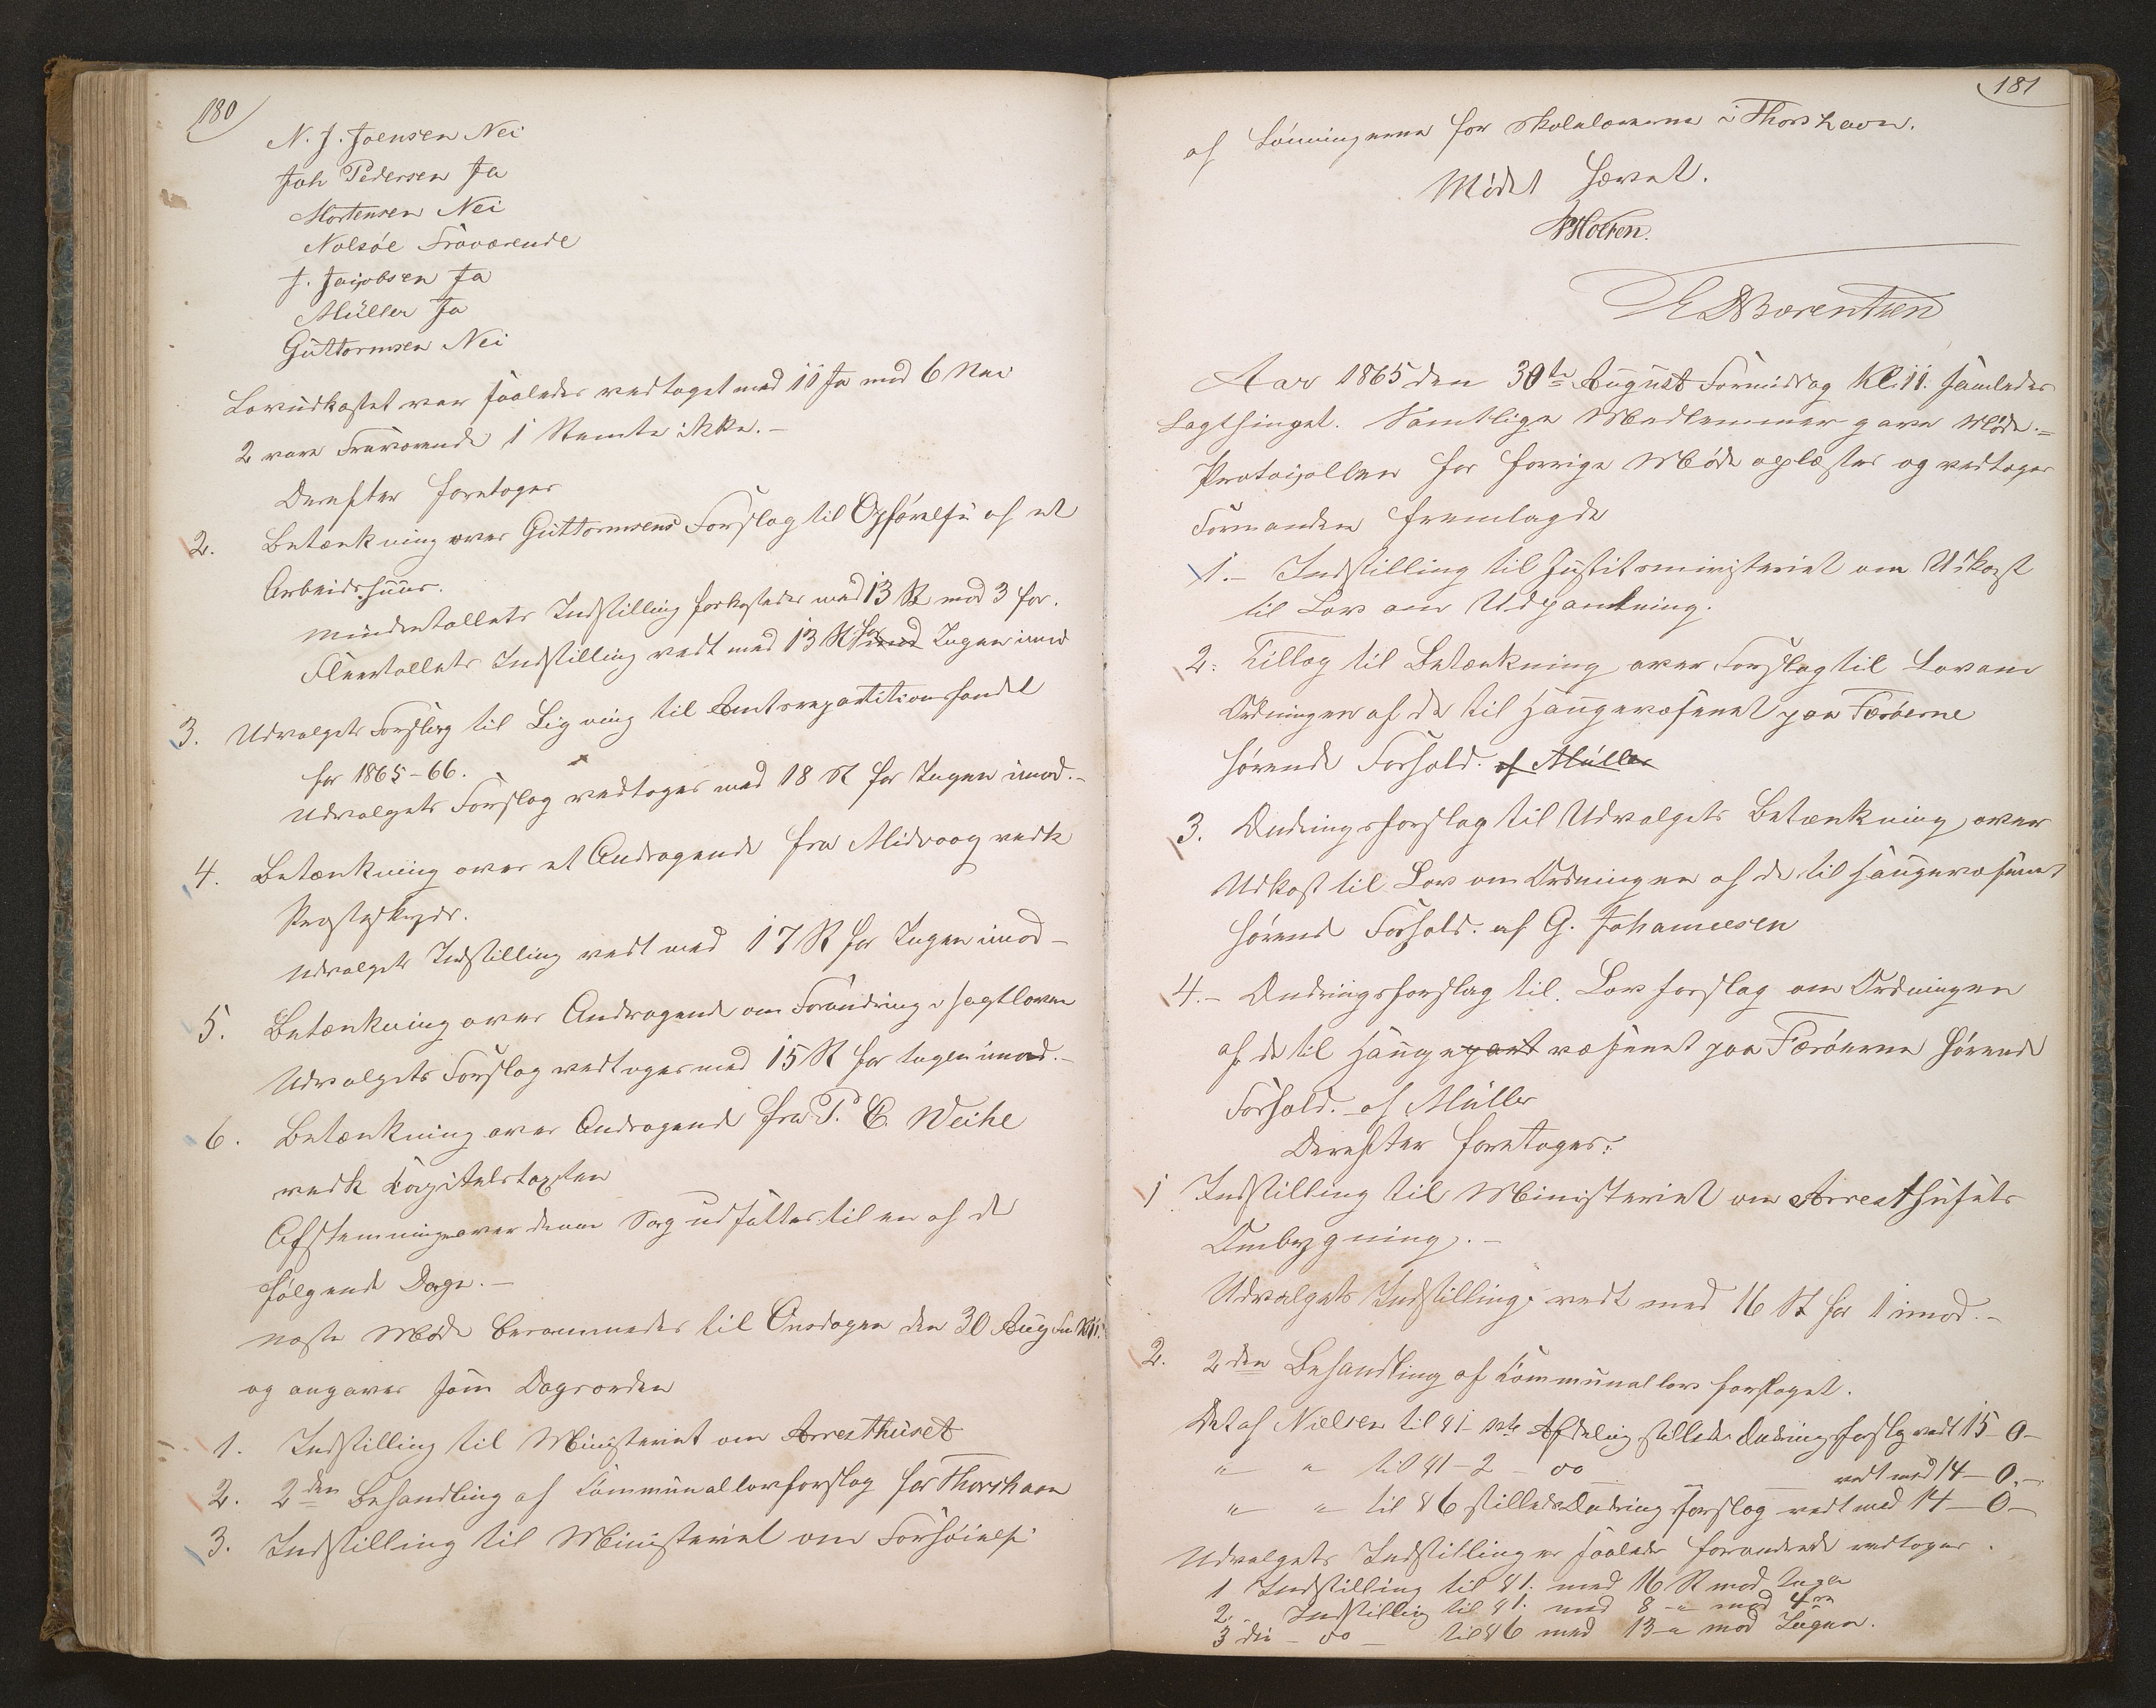 180
N. J. Joensen Nei
Joh Pedersen Ja
Mortensen Nei
Nolsøe Fraværende
J. Jacobsen Ja
Müller Ja
Guttormsen Nei
Lovudkastet var saaledes vedtaget med 11 Ja mod 6 Nei
2 vare Fraværende 1 Stemte ikke.-
Derefter foretoges
2. Betænkning over Guttormsens Forslag til Opførelse af et
Arbeidshuus.
Mindretallets Indstilling forkastedes med 13 St mod 3 for.
Fleertallets Indstilling vedt med 13 St for Ingen imod
3. Udvalgets Forslag til Ligning til Amtsrepartitionsfondet
for 1865-66.
Udvalgets Forslag vedtoges med 18 St for Ingen imod.-
4. Betænkning over et Andragende fra Midvaag vedk
Præsteskyds.
Udvalgets Indstilling vedt med 17 St for Ingen imod-
5. Betænkning over Andragende om Forandring i Jagtloven
Udvalgets Forslag vedtoges med 15 St for Ingen imod.-
6. Betænkning over Andragende fra P. C. Weihe
vedk Capitelstaxten
Afstemningen over denne Sag udsattes til en af de
følgende Dage.-
næste Møde berammedes til Onsdagen den 30 Aug Fm Kl 11.
og angaves som Dagsorden
1. Indstilling til Ministeriet om Arresthuset
2. 2den Behandling af Communallovforslag for Thorshavn
3. Indstilling til Ministeriet om Forhøielse
181
af Lønningerne for Skolelærerne i Thorshavn.
Mødet hævet.
Holten.
E Bærentsen
Aar 1865 den 30te August Formiddag Kl. 11. samledes
Lagthinget. Samtlige Medlemmer gave Møde.=
Protocollen for forrige Møde oplæstes og vedtoges
Formanden fremlagde
1.- Indstilling til Justitsministeriet om Udkast
til Lov om Udpantning.
2. Tillæg til Betænkning over Forslag til Lov om
Ordningen af de til Haugevæsenet paa Færøerne
hørende Forhold. af Müller
3. Ændringsforslag til Udvalgets Betænkning over
Udkast til Lov om Ordningen af de til Haugevæsenet
hørende Forhold. af G. Johannesen
4.- Ændringsforslag til Lovforslag om Ordningen
af de til Haugevæsenet paa Færøerne hørende
Forhold. af Müller
Derefter foretoges:
1 Indstilling til Ministeriet om Arresthusets
Ombygning.-
Udvalgets Indstilling vedt med 16 St for 1 imod.-
2. 2den Behandling af Communallovforslaget.
Det af Nielsen til §1- Afdeling stillede Ændringsforslag vedt 15-0-
" " til §1-2 - do vedt med 14-0.-
" " til §6 stillede Ændringsforslag vedt med 14-0-
Udvalgets Indstillinger saaledes forandrede vedtoges.
1 Indstilling til §1. med 16 St mod Ingen
2. Indstilling til §1. med 8 -" mod 4
3 die - do - til §6 med 13 -" mod Ingen.